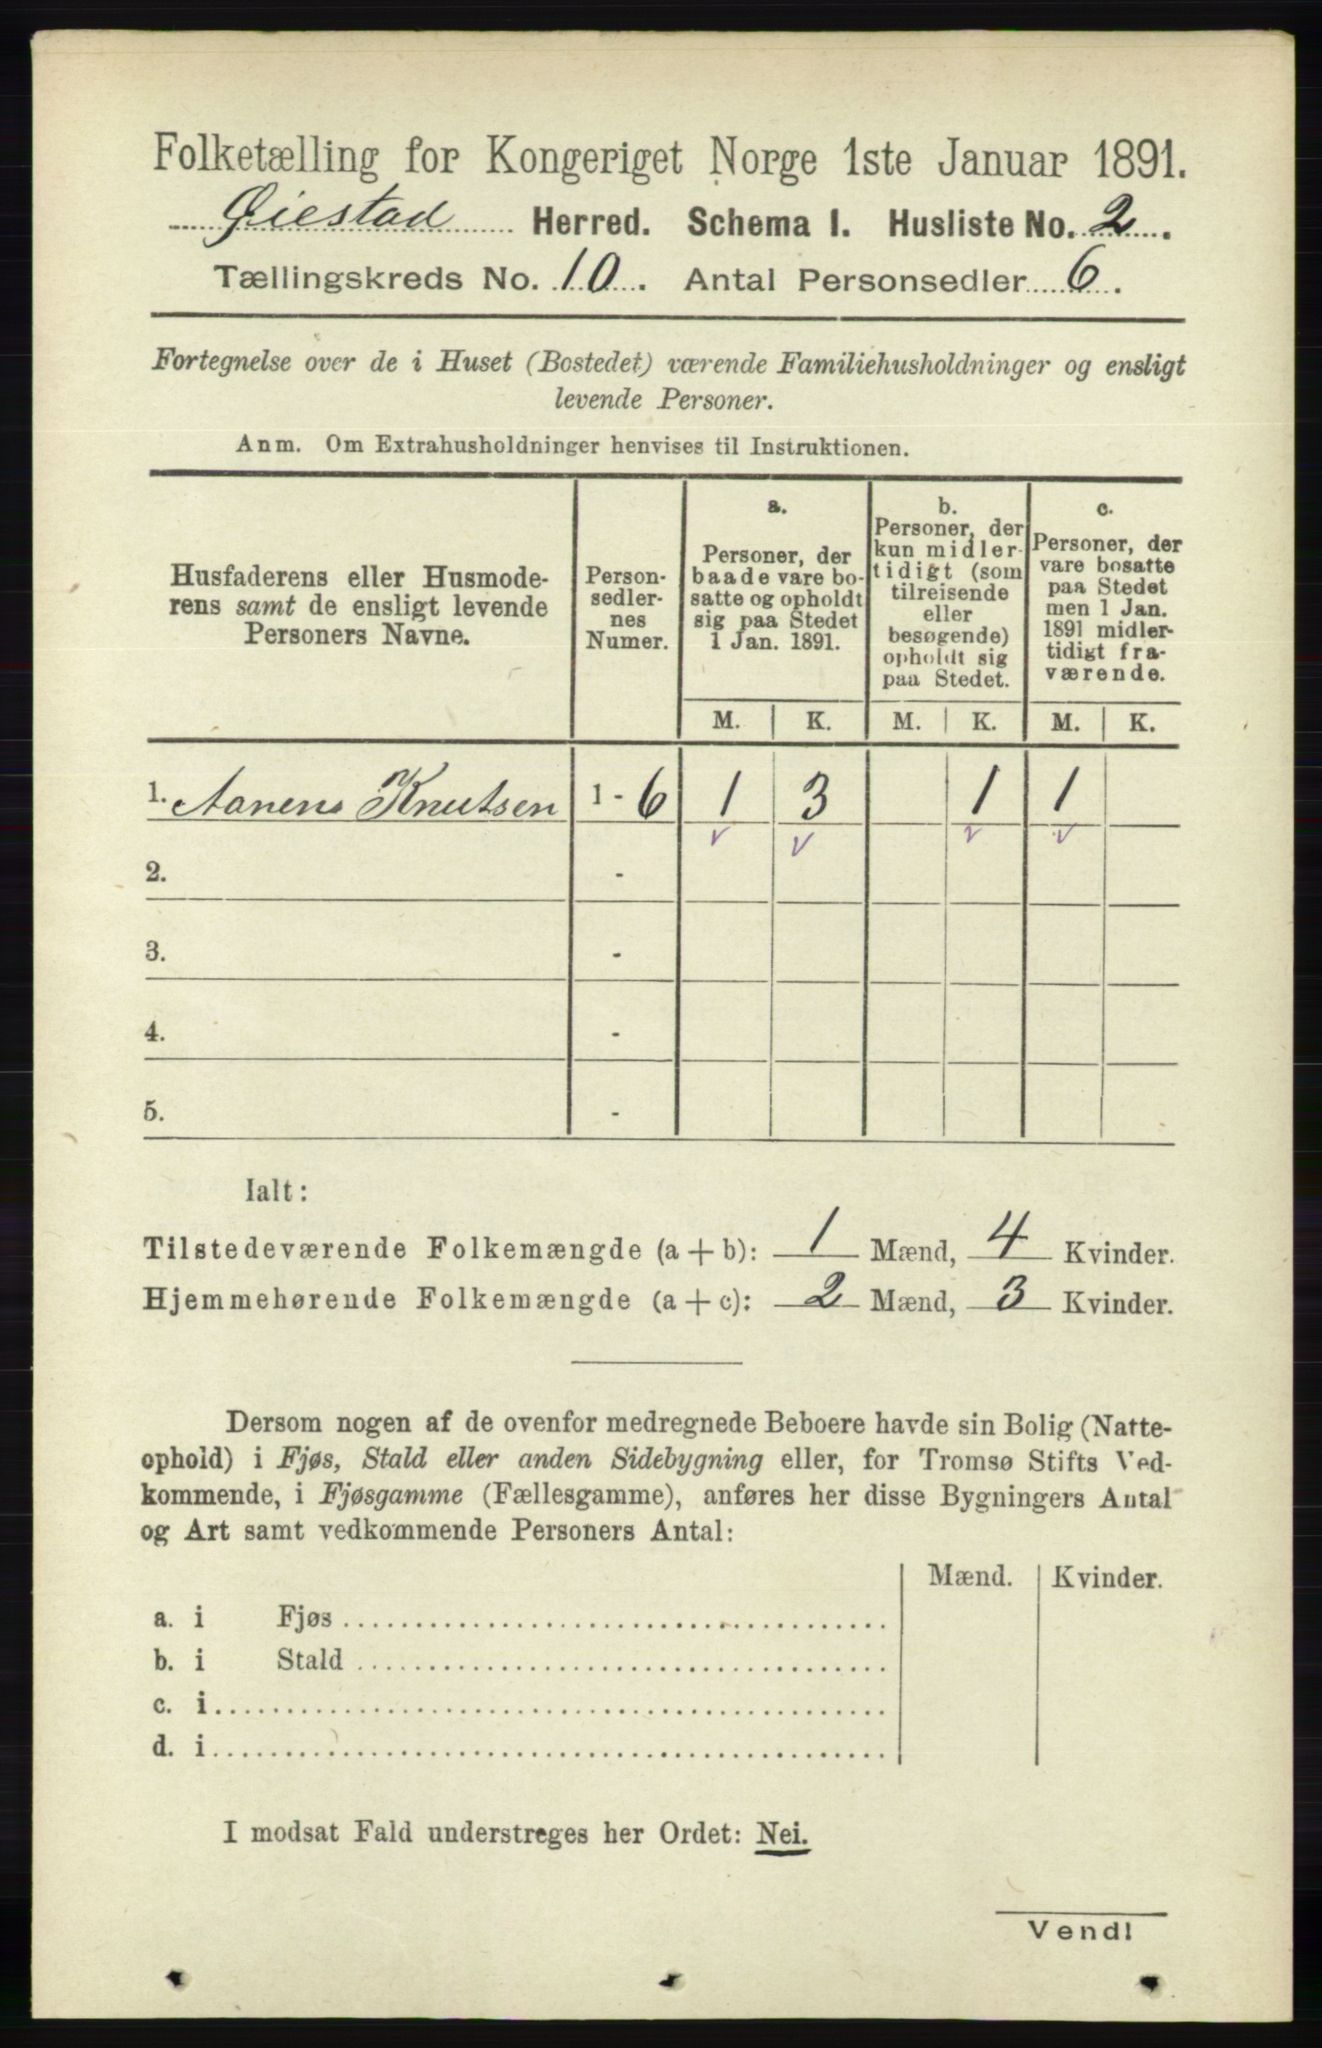 Folketælling for Kongeriget Norge 1ste Januar 1891.
Øiestad Herred. Schema I. Husliste No. 2.
Tællingskreds No. 10. Antal Personsedler 6.
Fortegnelse over de i Huset (Bostedet) værende Familiehusholdninger og ensligt
levende Personer.
Anm. Om Extrahusholdninger henvises til Instruktionen.
Husfaderens eller Husmode-
rens samt de ensligt levende
Personers Navne.
Person-
sedler-
nes
Numer.
a.
Personer, der
baade vare bo-
satte og opholdt
sig paa Stedet
1 Jan. 1891.
b.
Personer, der
kun midler-
tidigt (som
tilreisende
eller
besøgende)
opholdt sig
paa Stedet.
c.
Personer, der
vare bosatte
paa Stedet
men 1 Jan.
1891 midler-
tidigt fra-
værende.
M. K. M. K. M. K.
1. Aanens Knutsen 1 - 6 1 3 1 1
2. -
3. -
4. -
5. -
Ialt:
Tilstedeværende Folkemængde (a + b): 1 Mænd, 4 Kvinder.
Hjemmehørende Folkemængde (a + c): 2 Mænd, 3 Kvinder.
Dersom nogen af de ovenfor medregnede Beboere havde sin Bolig (Natte-
ophold) i Fjøs, Stald eller anden Sidebygning eller, for Tromsø Stifts Ved-
kommende, i Fjøsgamme (Fællesgamme), anføres her disse Bygningers Antal
og Art samt vedkommende Personers Antal:
Mænd. Kvinder.
a. i Fjøs
b. i Stald
c. i
d. i
I modsat Fald understreges her Ordet: Nei.
Vend!